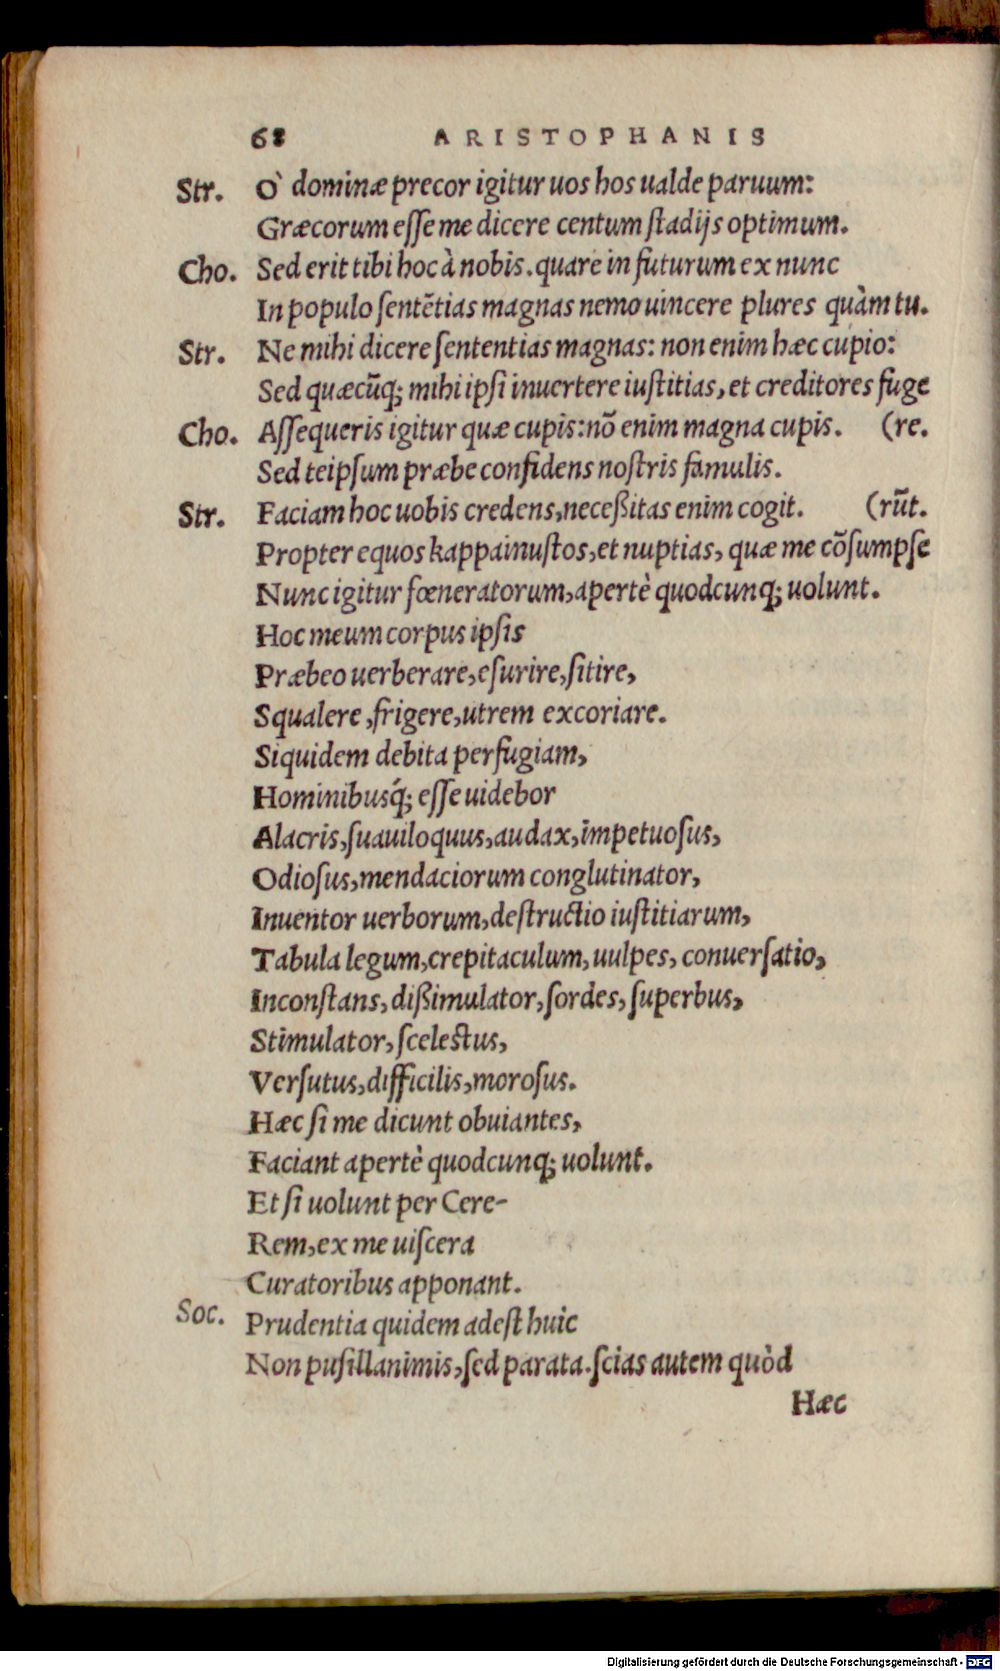 68 ARISTOPHANIS
Str. O` dominæ precor igitur uos hos ualde paruum:
Græcorum eſſe me dicere centum ſtadijs optimum.
Cho. Sed erit tibi hoc à nobis. quare in futurum ex nunc
In populo ſentẽtias magnas nemo uincere plures quàm tu.
Str. Ne mihi dicere ſententias magnas: non enim hæc cupio:
Sed quæcũq; mihi ipſi inuertere iuſtitias, et creditores fuge
Cho. Aſſequeris igitur quæ cupis: nõ enim magna cupis. (re.
Sed teipſum præbe confidens noſtris famulis.
Str. Faciam hoc uobis credens, neceßitas enim cogit. (rũt.
Propter equos kappainuſtos, et nuptias, quæ me cõſumpſe
Nunc igitur fœneratorum, apertè quodcunq; uolunt.
Hoc meum corpus ipſis
Præbeo uerberare, eſurire, ſitire,
Squalere, frigere, utrem excoriare.
Siquidem debita perfugiam,
Hominibusq́; eſſe uidebor
Alacris, ſuauiloquus, audax, impetuoſus,
Odioſus, mendaciorum conglutinator,
Inuentor uerborum, deſtructio iuſtitiarum,
Tabula legum, crepitaculum, uulpes, conuerſatio,
Inconſtans, dißimulator, ſordes, ſuperbus,
Stimulator, ſceleſtus,
Verſutus, difficilis, moroſus.
Hæc ſi me dicunt obuiantes,
Faciant apertè quodcunq; uolunt.
Et ſi uolunt per Cere-
Rem, ex me uiſcera
Curatoribus apponant.
Soc. Prudentia quidem adeſt huic
Non puſillanimis, ſed parata. ſcias autem quòd
Hæc
Digitalisierung gefördert durch die Deutsche Forschungsgemeinschaft - DFG